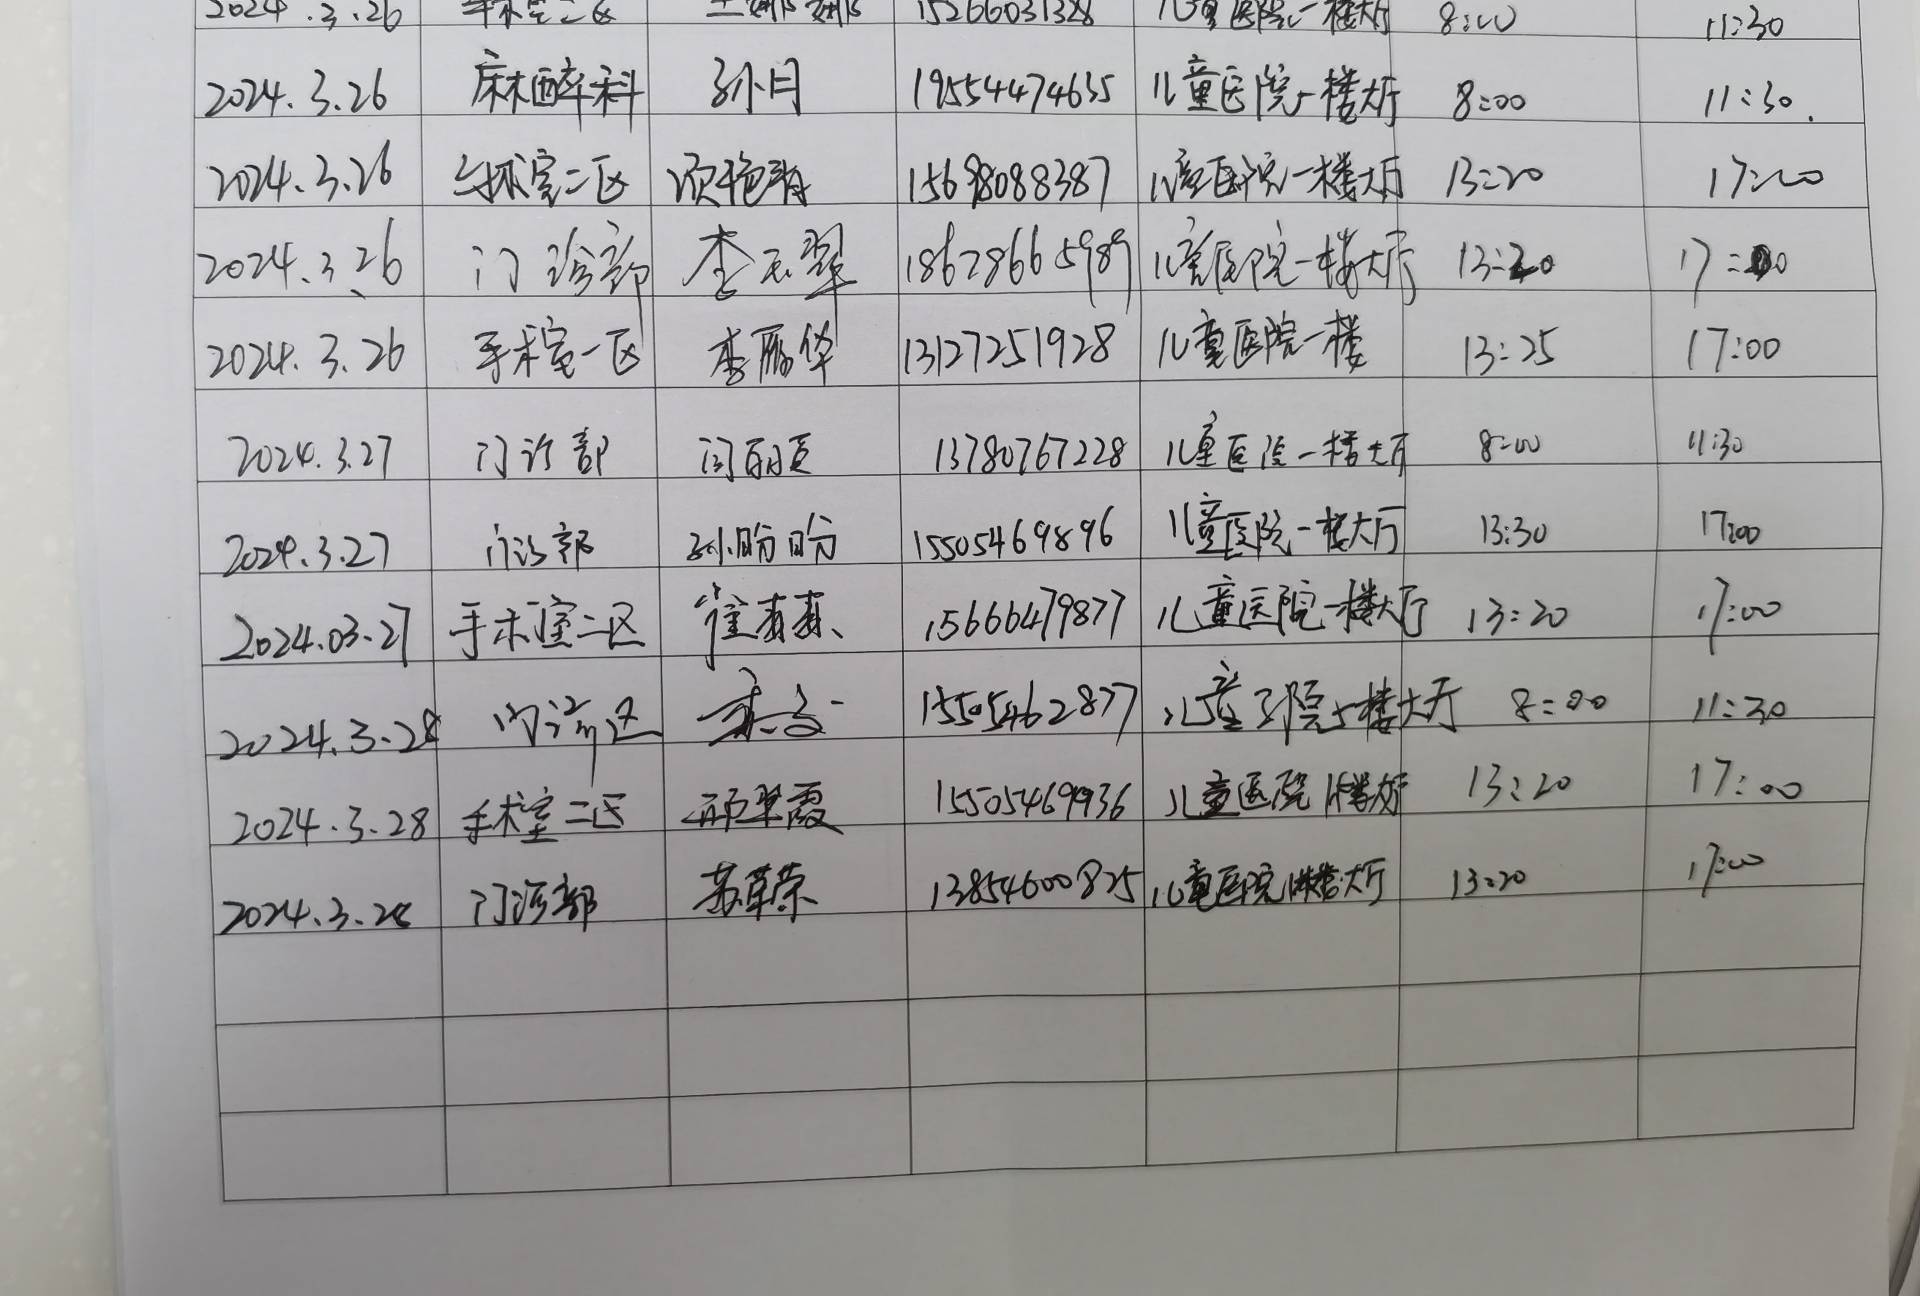 2024.3.26 手术室二区 王娜娜 15266031328 儿童医院一楼大厅 8:00 11:30
2024.3.26 麻醉科 孙月 19554474635 儿童医院一楼大厅 8:00 11:30.
2024.3.26 手术室二区 15698088387 儿童医院一楼大厅 13:20 17:00
2024.3.26 门诊部 李玉翠 18678665989 儿童医院一楼大厅 13:20 17:00
2024.3.26 手术室一区 李丽华 13127251928 儿童医院一楼 13:25 17:00
2024.3.27 门诊部 13780767228 儿童医院一楼大厅 8:00 11:30
2024.3.27 门诊部 孙盼盼 15505469896 儿童医院一楼大厅 13:30 17:00
2024.03.27 手术室二区 15666479877 儿童医院一楼大厅 13:20 17:00
2024.3.28 门诊 15505462877 儿童医院一楼大厅 8:00 11:30
2024.3.28 手术室二区 15505469936 儿童医院1楼大厅 13:20 17:00
2024.3.28 门诊部 苏草荣 13854600825 儿童医院1楼大厅 13:20 17:00